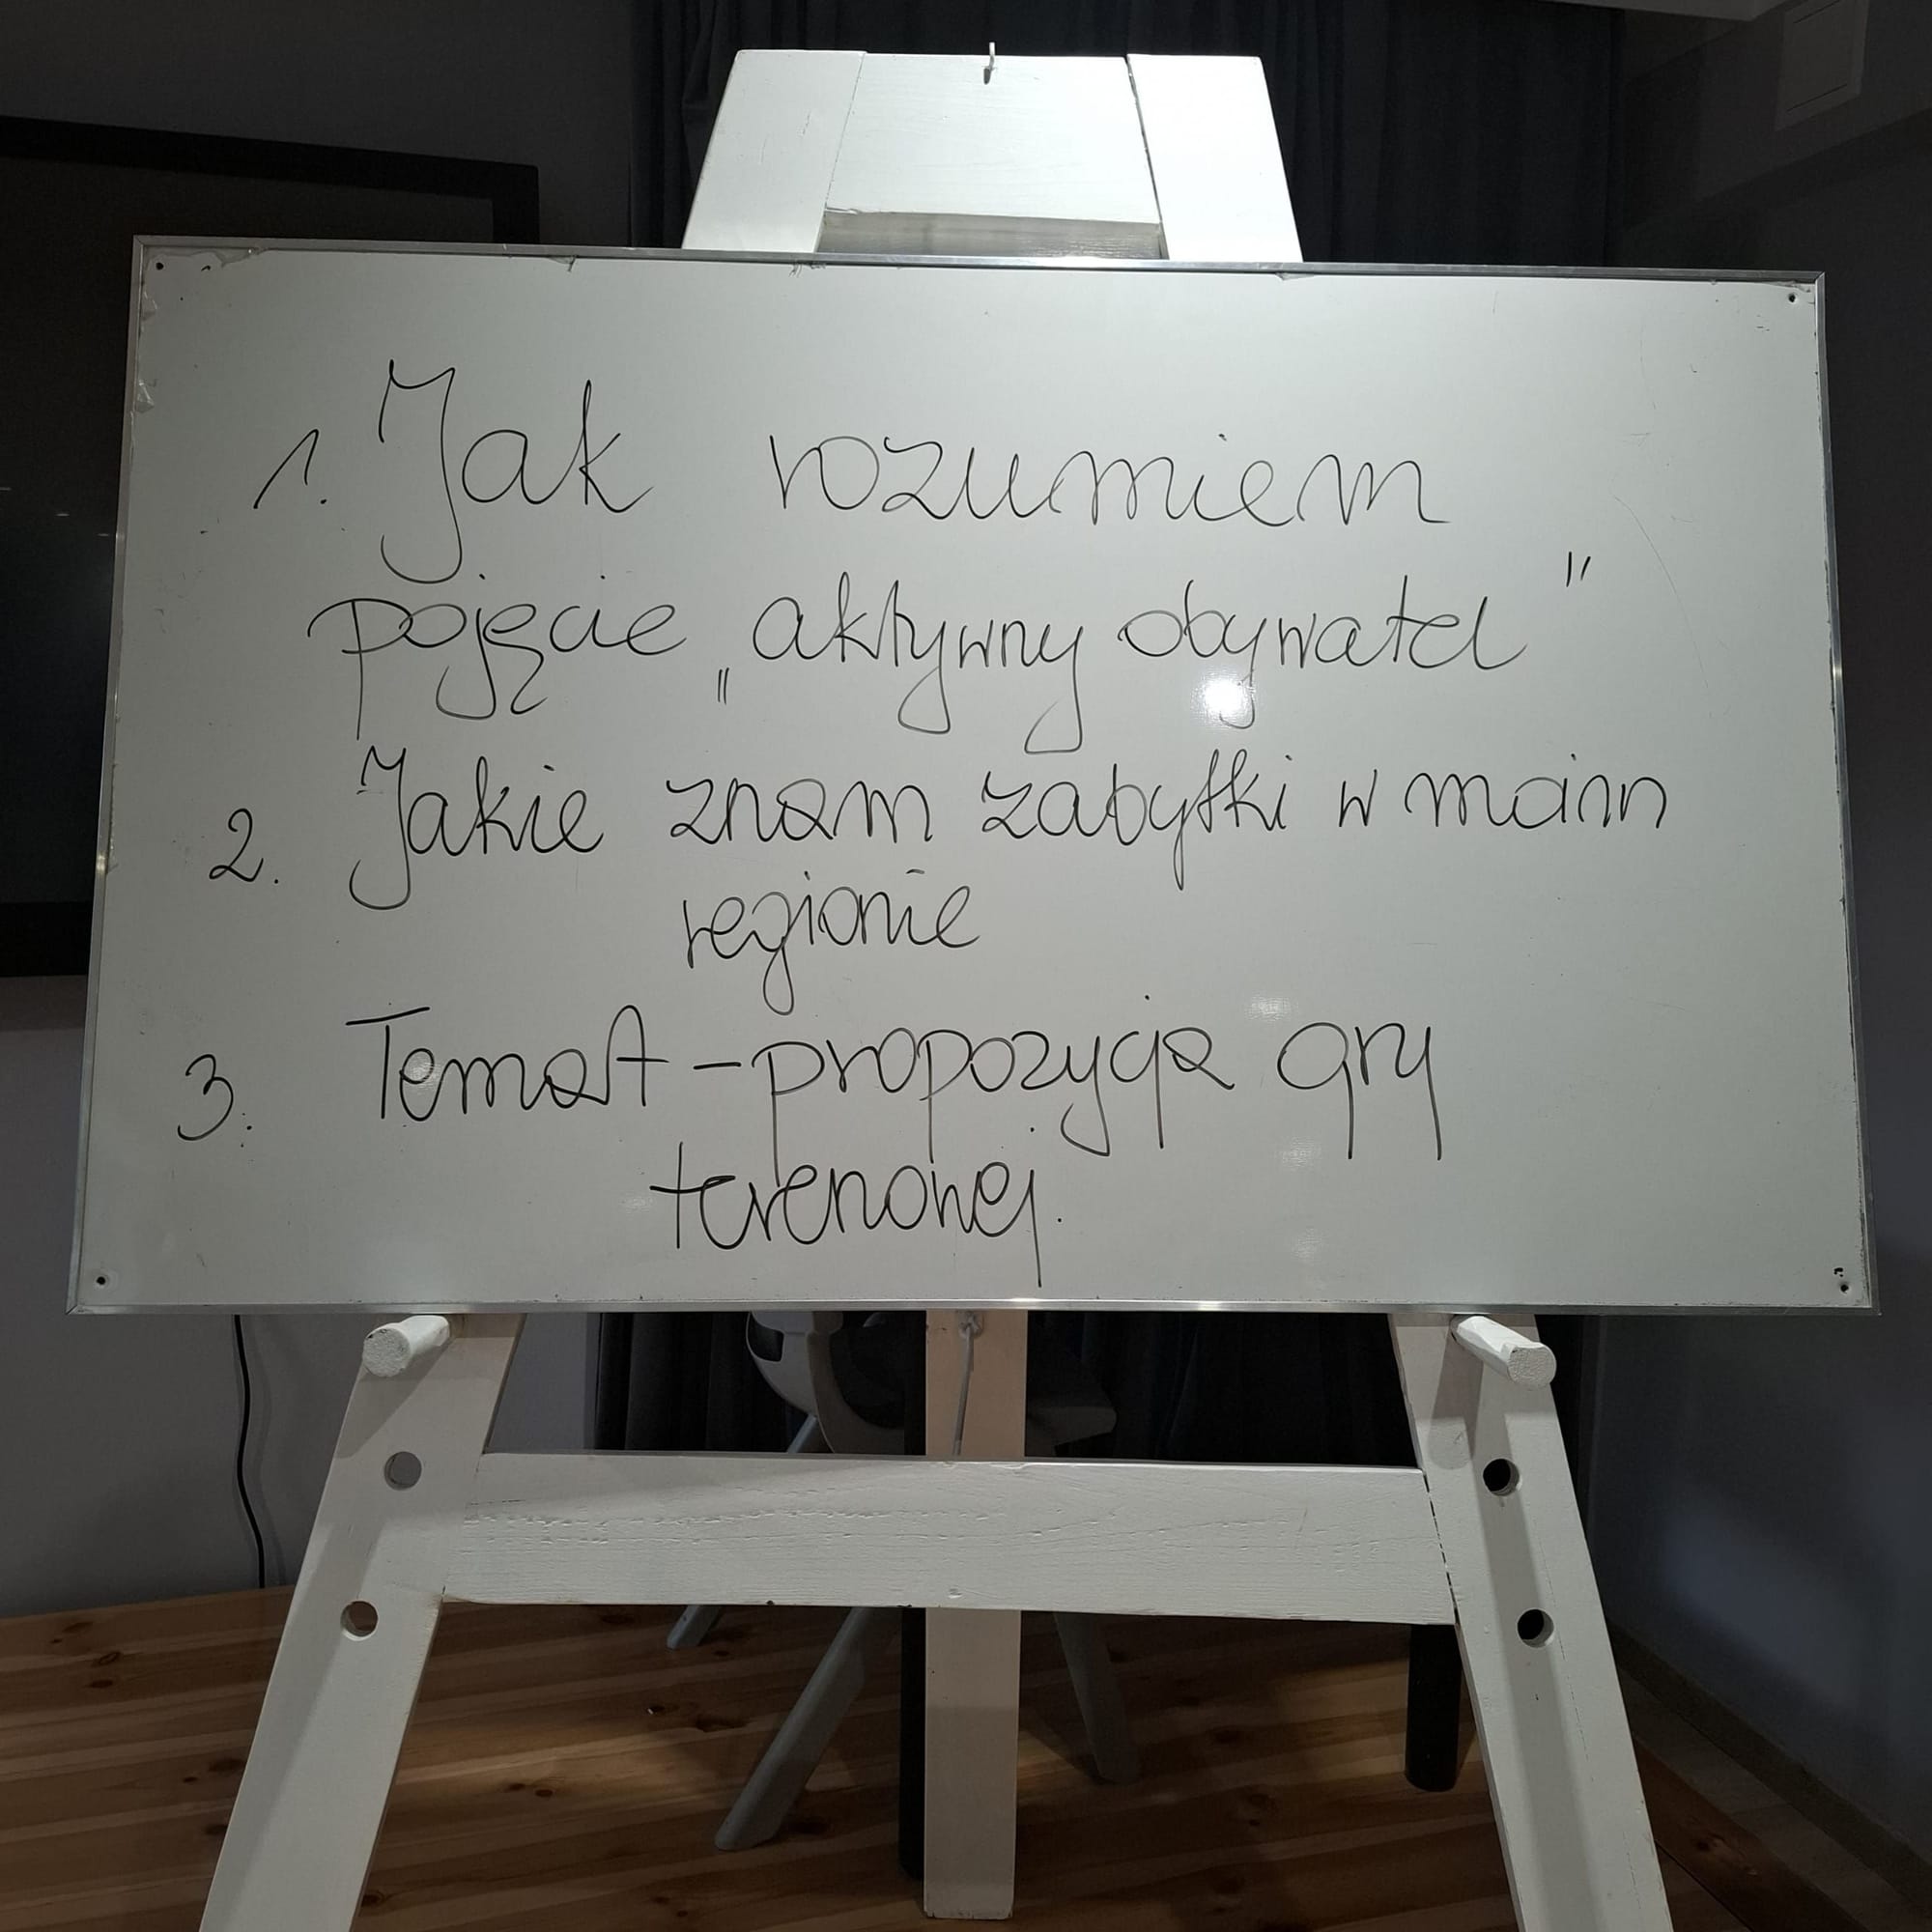 1. Jak rozumiem
pojęcie „aktywny obywatel”
2. Jakie znam zabytki w moim
regionie
3. Temat - propozycja gry
terenowej.